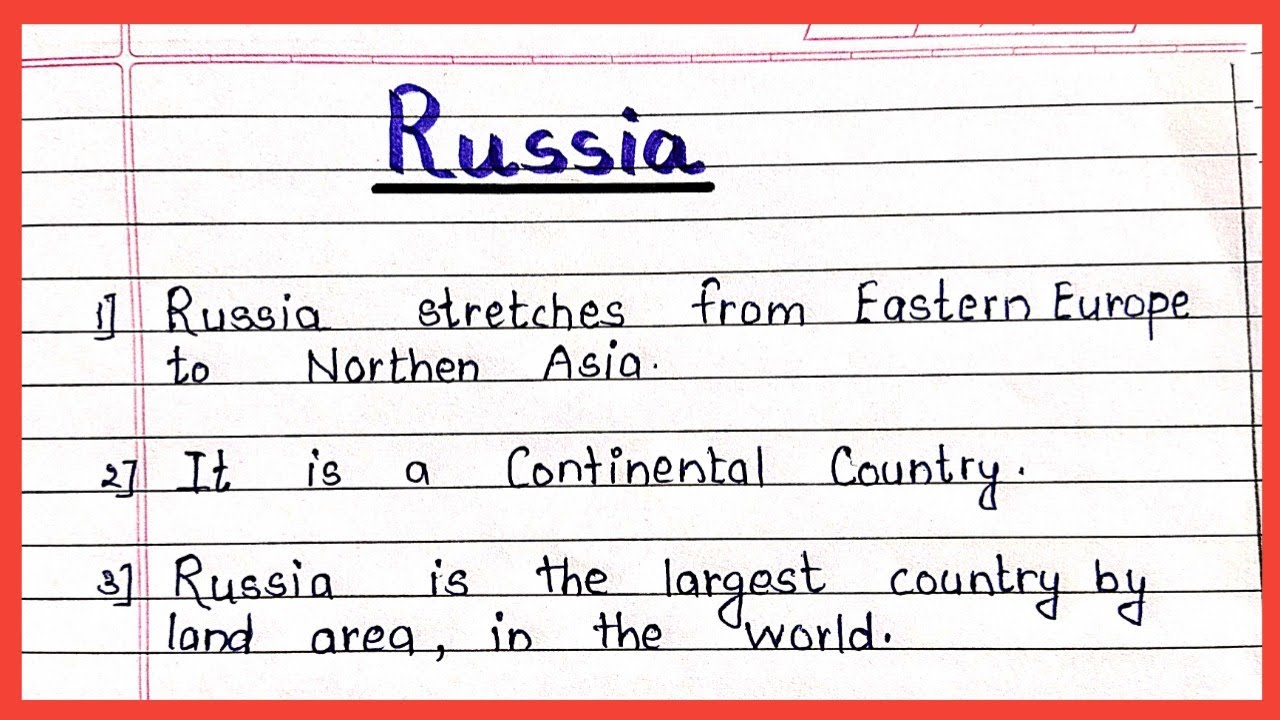 Russia
1] Russia stretches from Eastern Europe
to Northen Asia.
2] It is a Continental Country.
3] Russia is the largest country by
land area, in the world.